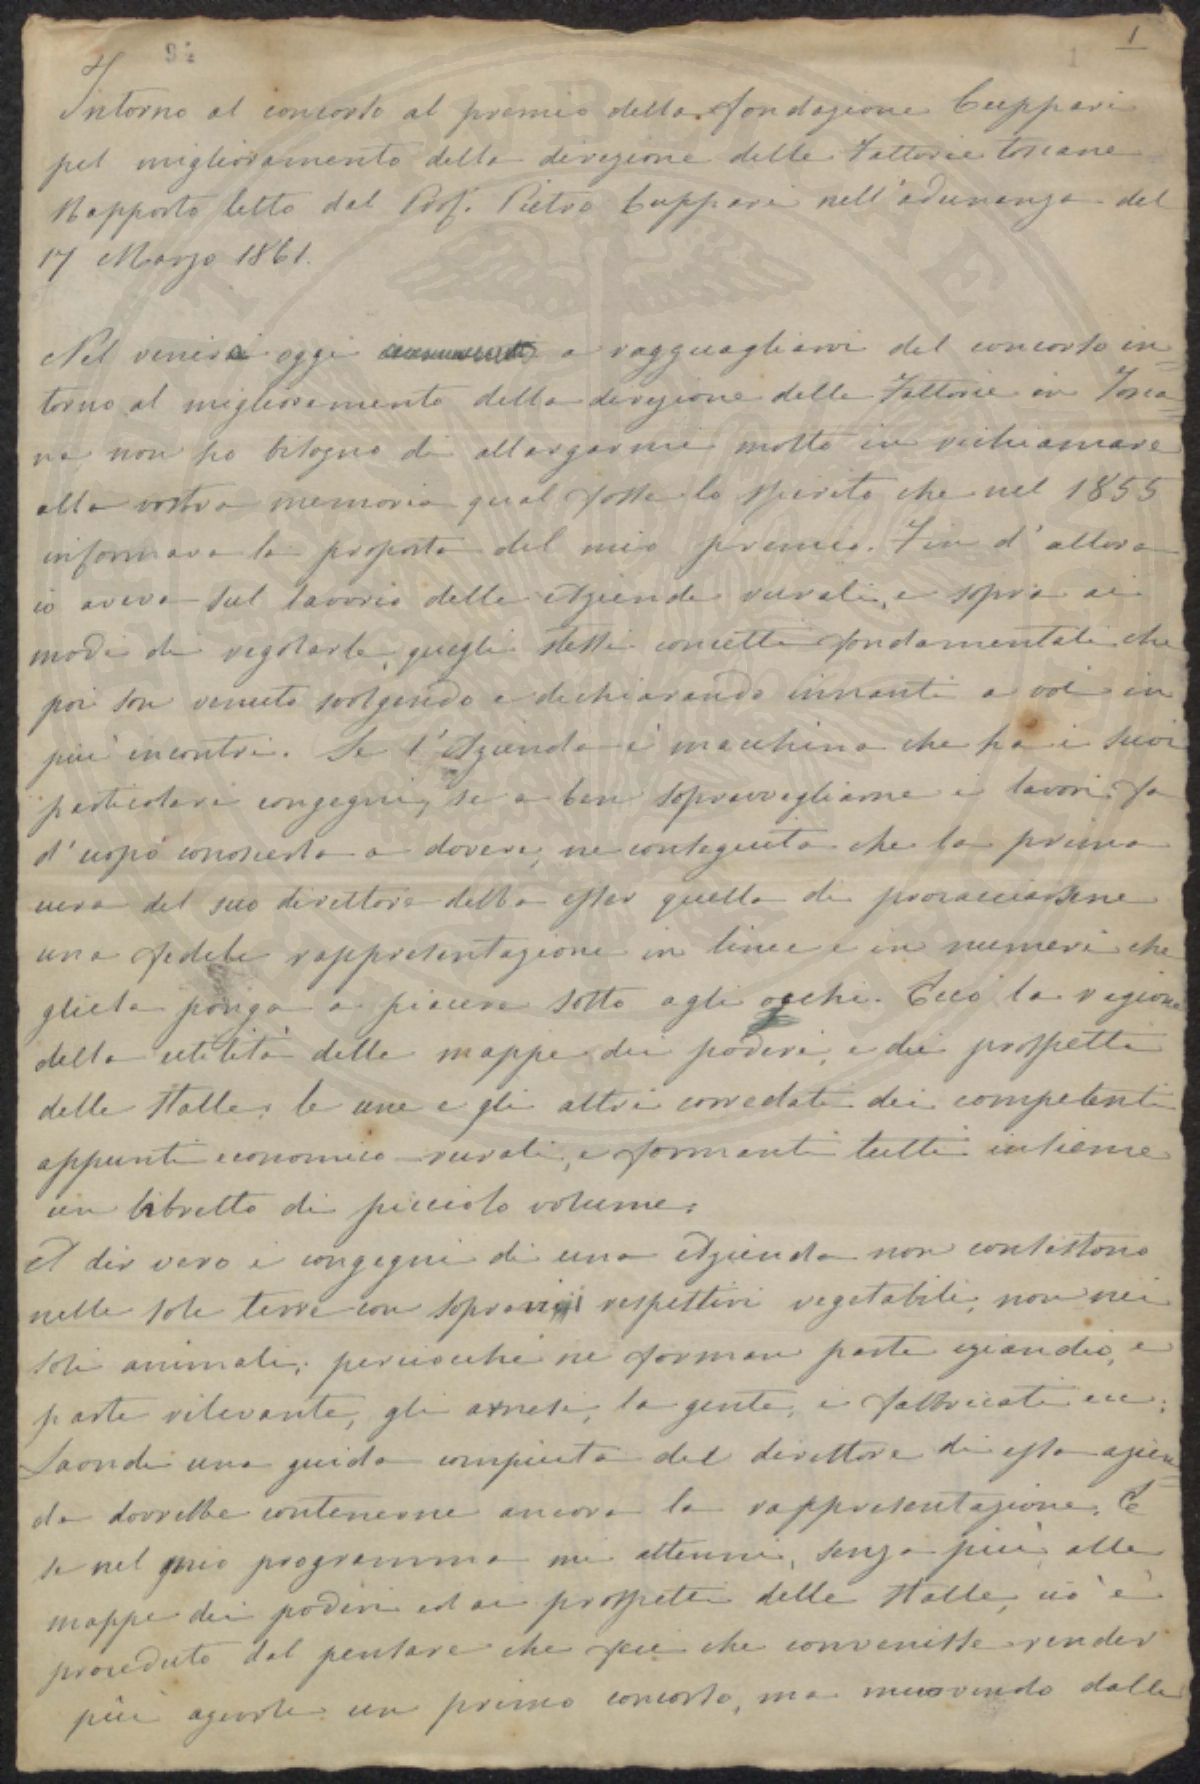 94
1
1
Intorno al concorso al premio della fondazione Cuppari
pel miglioramento della direzione delle Fattorie toscane
Rapporto letto dal Prof. Pietro Cuppari nell'adunanza del
17 Marzo 1861.
Nel venire oggi a ragguagliarvi del concorso in=
torno al miglioramento della direzione delle Fattorie in Tosca=
na non ho bisogno di allargarmi molto in richiamare
alla vostra memoria qual fosse lo spirito che nel 1855
informava la proposta del mio premio. Fin d'allora
io aveva sul lavorio delle Aziende rurali, e sopra ai
modi di regolarle, quegli stessi concetti fondamentali che
poi son venuto svolgendo e dichiarando innanti a voi in
più incontri. Se l'Azienda è macchina che ha i suoi
particolari congegni, se a ben sopravvegliarne i lavori fa
d'uopo conoscerla a dovere, ne conseguita che la prima
cura del suo direttore debba esser quella di procacciarsene
una fedele rappresentazione in linee e in numeri che
gliela ponga a piacere sotto agli occhi. Ecco la ragione
della utilità delle mappe dei poderi, e dei prospetti
delle stalle; le une e gli altri corredati dei competenti
appunti economico-rurali, e formanti tutti insieme
un libretto di piccolo volume.
A dir vero i congegni di una Azienda non consistono
nelle sole terre con sopravi i respettivi vegetabili, non nei
soli animali; perciocchè ne forman parte eziandio, e
parte rilevante, gli arnesi, la gente, i fabbricati ecc.
Laonde una guida compiuta del direttore di essa azien=
da dovrebbe contenerne ancora la rappresentazione. E
se nel mio programma mi attenni, senza più, alle
mappe dei poderi ed ai prospetti delle stalle, ciò è
proceduto dal pensare che più che convenisse render
più agevole un primo concorso, ma muovendo dalle